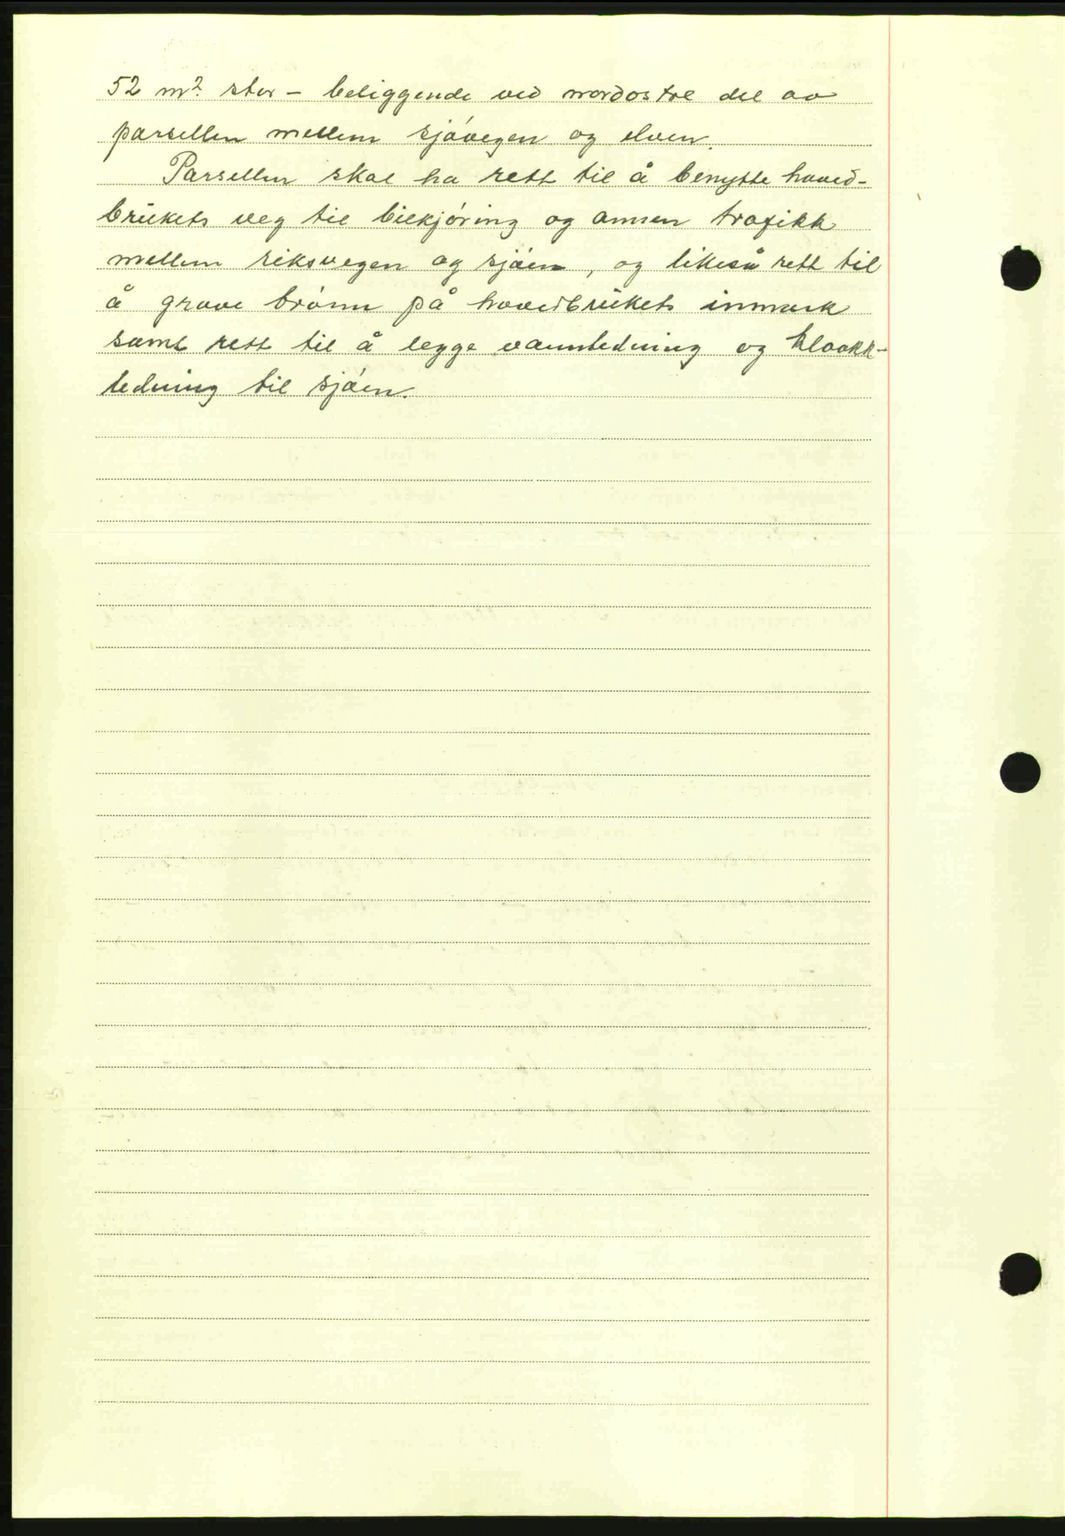 52 m² stor – beliggende ved nordostre del av
parsellen mellem sjóvegen og elven.
Parsellen skal ha rett til å benytte hoved-
brukets veg til bilkjóring og annen trafikk
mellem riksvegen og sjóen, og likeså rett til
å grave brónn på hovedbrukets innmark
samt rett til å legge vannledning og kloakk-
ledning til sjóen.